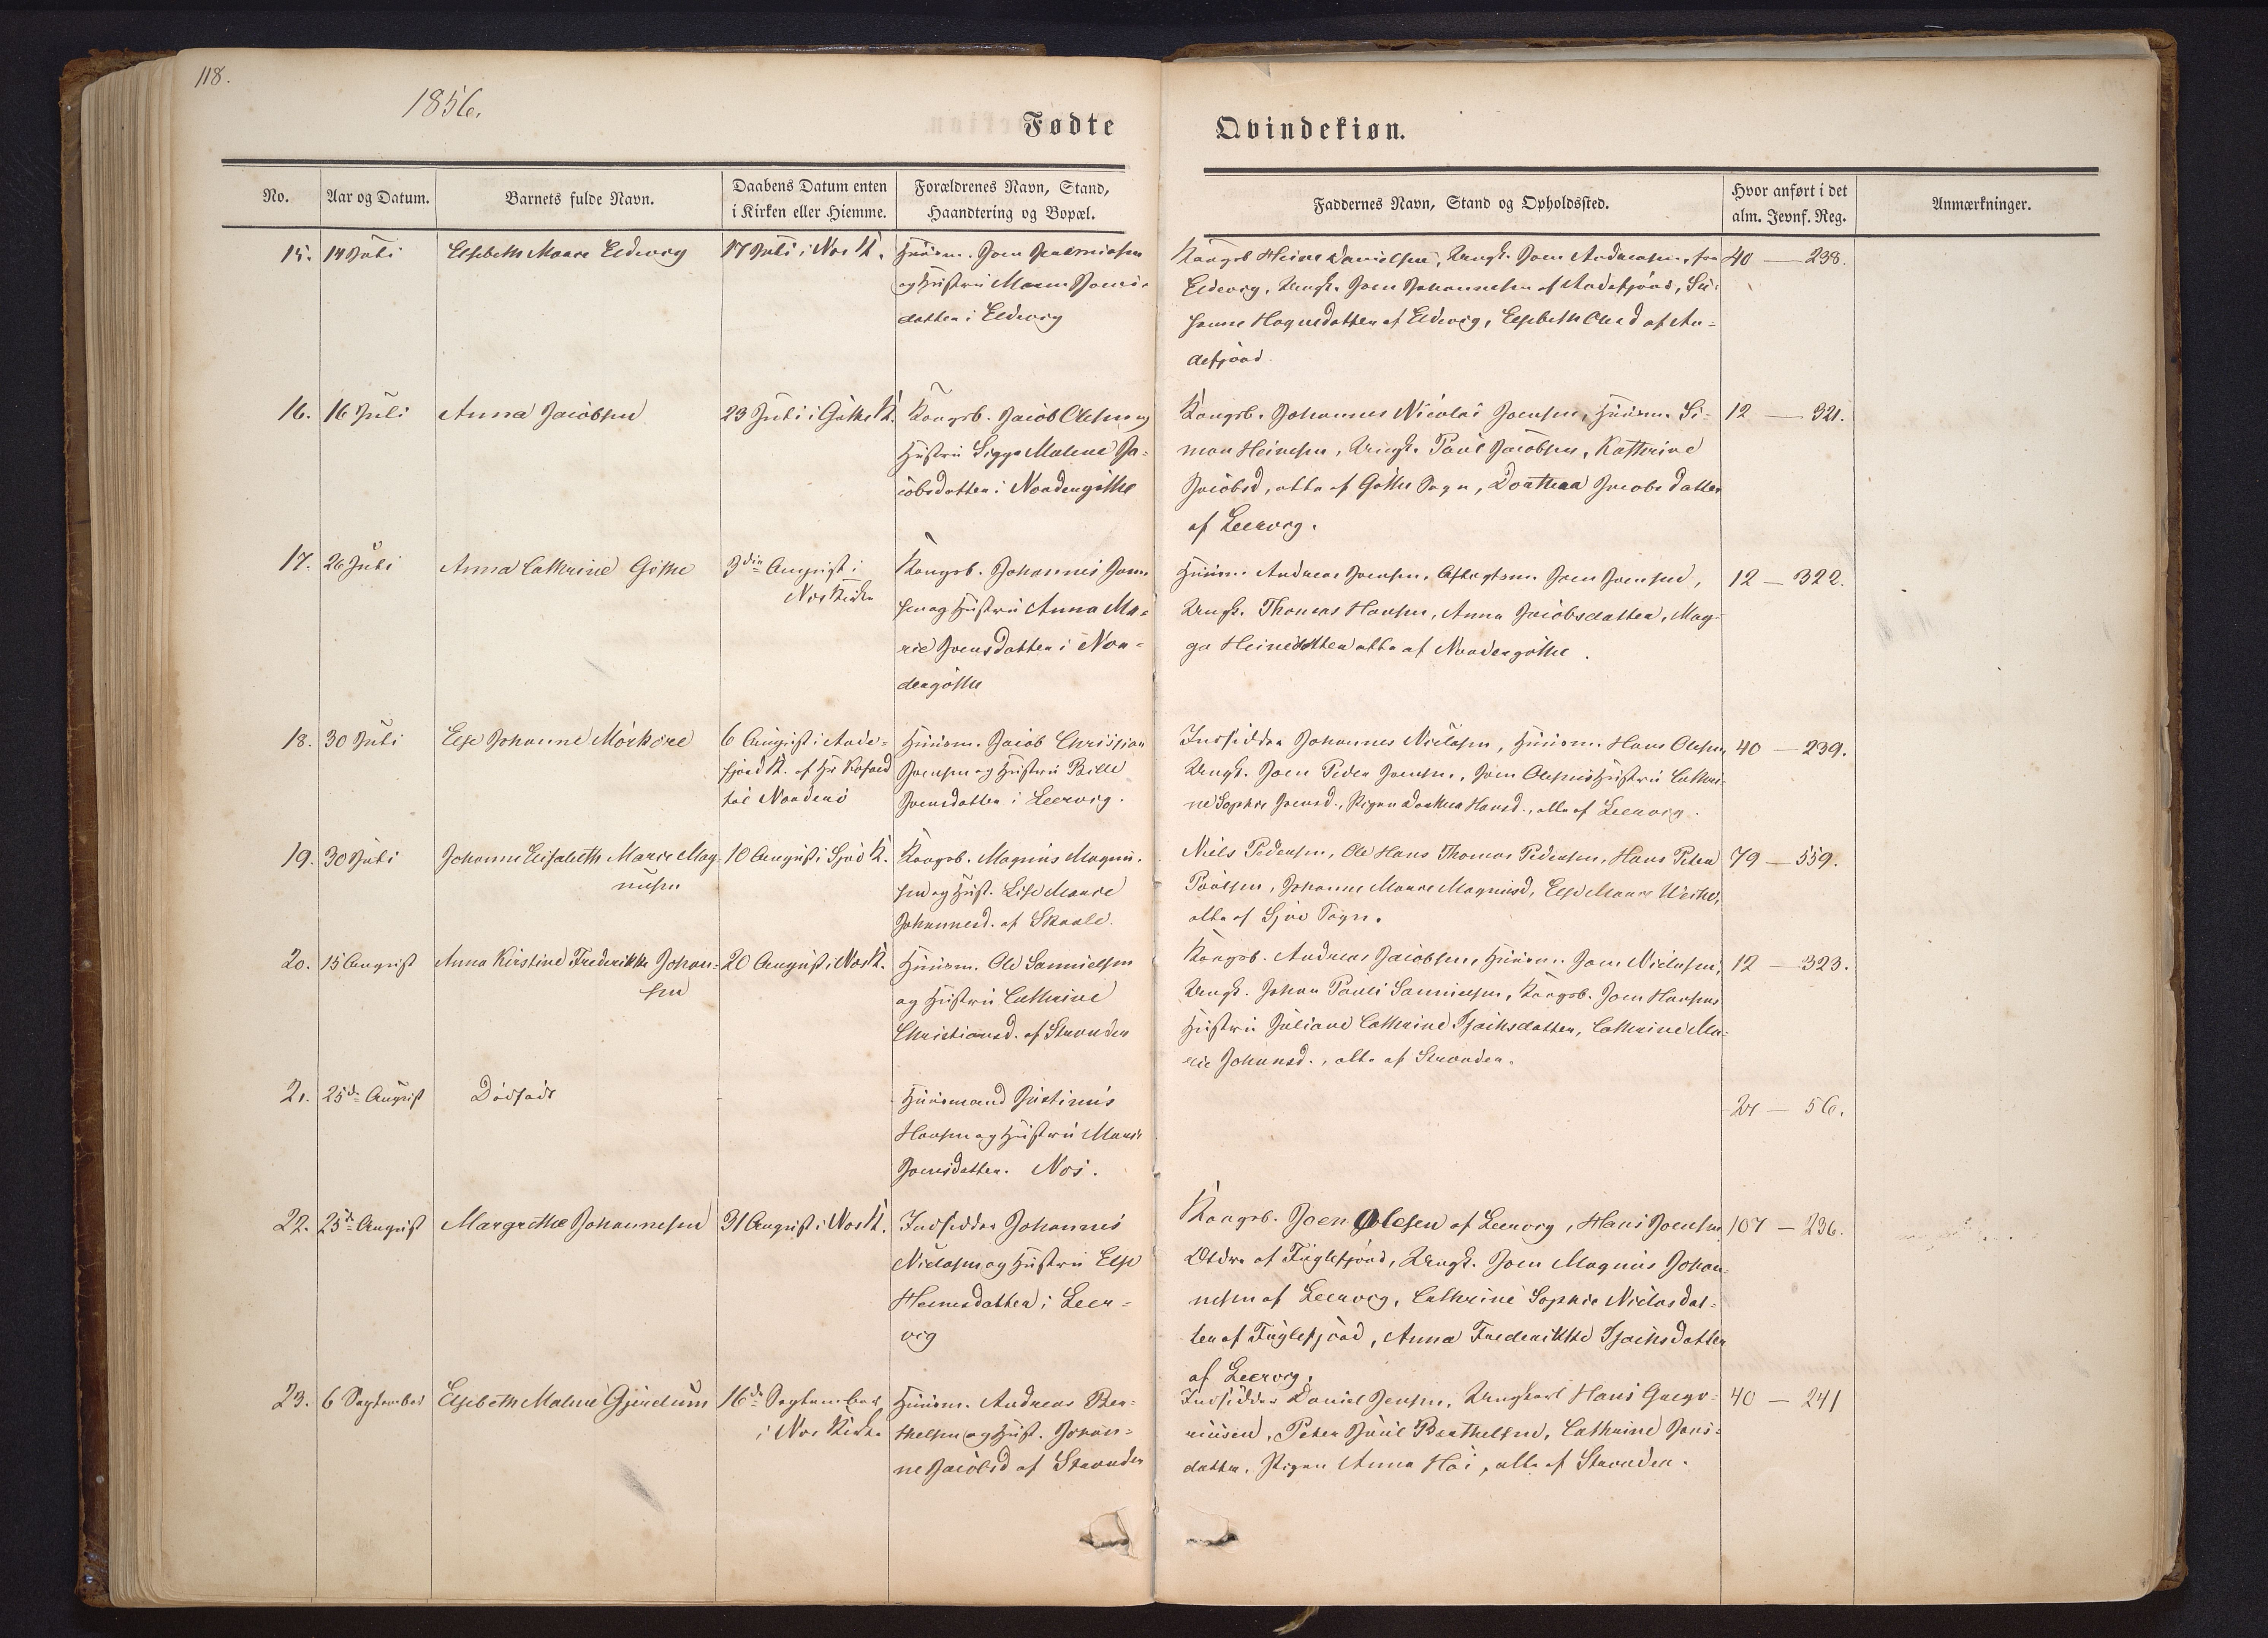 118.
1856.
Fødte
Qvindekiøn.
No.
Aar og Datum.
Barnets fulde Navn.
Daabens Datum enten
i Kirken eller Hiemme.
Forældrenes Navn, Stand,
Haandtering og Bopæl.
Faddernes Navn, Stand og Opholdssted.
Hvor anført i det
alm. Jevnf. Reg.
Anmærkninger.
15.
14 Juli
Elsebeth Maare Eldevig
17 Juli i Nos K.
Huusm. Joen
og Hustru Maren Joens-
datter i Eldevig
Kongsb Heine Danielsen, Ungk. Joen Andreasen, fra
Eldevig, Ungk. Joen Johannesen af Andefjord, Su-
sanne Hognesdatter af Eldevig, Elsebeth Olesd af An-
defjord.
40 — 238.
16.
16 Juli
Anna Jacobsen
23 Juli i Gøthe K.
Kongsb. Jacob Olesen og
Hustru Sigga Malene Ja-
cobsdatter i Nordengøthe
Kongsb. Johannes Nicolai Joensen, Huusm. Si-
mon Heinesen, Ungk. Poul Jacobsen, Katterine
Jacobsd, alle af Gøthe Sogn, Dorthea Jacobsdatter
af Leervig.
12 — 321.
17.
26 Juli
Anna Cathrine Gøthe
3die August i
Nos Kirke
Kongsb. Johannes Joen-
sen og Hustru Anna Ma-
rie Joensdatter i Nor-
dengøthe
Huusm. Andreas Joensen, Aftægtsm. Joen Joensen,
Ungk. Thomas Hansen, Anna Jacobsdatter, Mag-
ga Heinesdatter alle af Nordengøthe.
12 — 322.
18.
30 Juli
Else Johanne Mørkøre
6 August i Ande-
fjord K. af Hr
Norderø
Huusm. Jacob Christian
Joensen og Hustru Bille
Joensdatter i Leervig.
Indsidder Johannes Niclasen, Huusm. Hans Olesen
Ungk. Joen Peder Joensen, Joen Olesens Hustru Cathri-
ne Sophie Joensd., Pigen Dorthea Hansd., alle af Leervig.
40 — 239.
19.
30 Juli
Johanne Elisabeth Marie Mag-
nusen
10 August i Sjov K.
Kongsb. Magnus Magnu-
sen og Hust. Lise Marie
Johannesd. af Skaale.
Niels Pedersen, Ole Hans Thomas Pedersen, Hans Peter
Poulsen, Johanne Marie Magnusd, Else Marie Weihe,
alle af Sjov Sogn.
79 — 559.
20.
15 August
Anna Kirstine Frederikke Johan-
sen
20 August i Nos K.
Huusm. Ole Samuelsen
og Hustru Cathrine
Christiansd. af Strender
Kongsb. Andreas Jacobsen, Huusm. Joen Niclasen,
Ungk. Johan Pauli Samuelsen, Kongsb. Joen Hansens
Hustru Juliane Cathrine Isachsdatter, Cathrine Ma-
rie Johansd., alle af Strender.
12 — 323.
21.
25de August
Dødfødt
Huusmand Justinus
Hansen og Hustru Marie
Joensdatter. Nos.
24 — 56.
22.
25de August
Margrethe Johannesen
31 August i Nos K.
Indsidder Johannes
Niclasen og Hustru Else
Heinesdatter i Leer-
vig
Kongsb. Joen Olesen af Leervig, Hans Joensen
Ældre af Fuglefjord, Ungk. Joen Magnus Johan-
nesen af Leervig, Cathrine Sophie Niclasdat-
ter af Fuglefjord, Anna Frederikke Isachsdatter
af Leervig.
107 — 236.
23.
6 September
Elsebeth Malene Gjerdum
16de September
i Nos Kirke
Huusm. Andreas Ber-
thelsen og Hust. Johan-
ne Jacobsd af Strender
Indsidder Daniel Jensen, Ungkarl Hans Grego-
riusen, Peter Juul Berthelsen, Cathrine Joens-
datter, Pigen Anna Høi, alle af Strender.
40 — 241